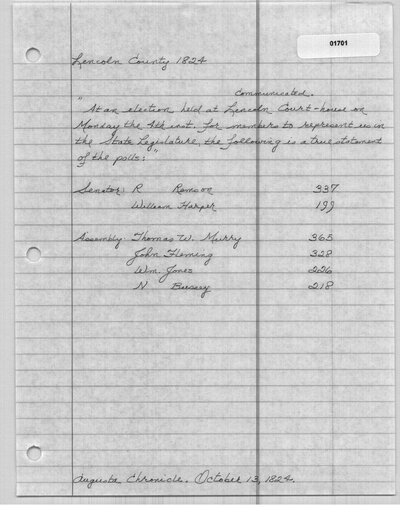 01701
Lincoln County 1824
Communicated.
"At an election held at Lincoln Court-house on
Monday the 4th inst. for members to represent us in
the State Legislature, the following is a true statement
of the polls:"
Senator: R Remson 337
William Harper 199
Assembly: Thomas W. Murry 365
John Fleming 328
Wm. Jones 226
N Bussey 218
Augusta Chronicle. October 13, 1824.